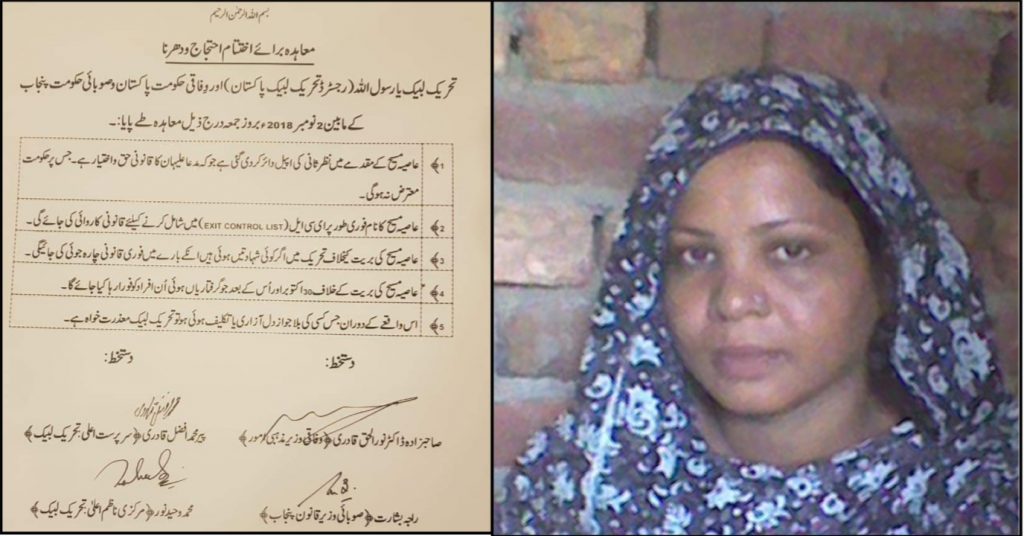 بسم اللہ الرحمٰن الرحیم
معاہدہ برائے اختتام احتجاج و دھرنا
تحریک لبیک یا رسول اللہ (رجسٹرڈ تحریک لبیک پاکستان) اور وفاقی حکومت پاکستان و صوبائی حکومت پنجاب
کے مابین 2 نومبر 2018ء بروز جمعہ درج ذیل معاہدہ طے پایا:۔
1﴾ عاصیہ مسیح کے مقدمے میں نظر ثانی کی اپیل دائر کردی گئی ہے جو کہ مدعا علیہان کا قانونی حق و اختیار ہے۔ جس پر حکومت
معترض نہ ہوگی۔
2﴾ عاصیہ مسیح کا نام فوری طور پر ای سی ایل (EXIT CONTROL LIST) میں شامل کرنے کیلئے قانونی کاروائی کی جائے گی۔
3﴾ عاصیہ مسیح کی بریت کیخلاف تحریک میں اگر کوئی شہادتیں ہوئی ہیں انکے بارے میں فوری قانونی چارہ جوئی کی جائیگی۔
4﴾ عاصیہ مسیح کی بریت کے خلاف 30 اکتوبر اور اُس کے بعد جو گرفتاریاں ہوئی اُن افراد کو فورا رہا کیا جائے گا۔
5﴾ اس واقعے کے دوران جس کسی کی بلا جواز دل آزاری یا تکلیف ہوئی ہو تو تحریک لبیک معذرت خواہ ہے۔
دستخط: دستخط:
صاحبزادہ ڈاکٹر نور الحق قادری ﴿وفاقی وزیر مذہبی امور﴾ پیر محمد افضل قادری ﴿سرپرست اعلی تحریک لبیک﴾
راجہ بشارت ﴿صوبائی وزیر قانون پنجاب﴾ محمد وحید نور ﴿مرکزی ناظم اعلیٰ تحریک لبیک﴾